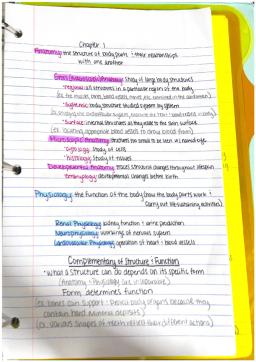 Chapter 1
Anatomy: the structure of body parts & their relationships
with one another
Gross (macroscopic) Anatomy: study of large body structures
· regional: all structures in a particular region of the body
(ex. the muscles, bones, blood vessels, nerves, etc. contained in the abdomen)
· Systemic: body structure studied system by system
· Surface: internal structures as they relate to the skin surface
(ex. locating appropriate blood vessels to draw blood from)
Microscopic Anatomy: structures too small to be seen w/ naked eye
· Cytology: study of cells
· histology: study of tissues
Developmental Anatomy: traces structural changes throughout lifespan
· Embryology: developmental changes before birth
Physiology: the function of the body (how the body parts work &
carry out life sustaining activities)
Renal Physiology: kidney function & urine production
Neurophysiology: workings of nervous system
Cardiovascular Physiology: operation of heart & blood vessels
Complementary of Structure & Function
· What a structure can do depends on its specific form
(Anatomy & Physiology are inseparable)
Form determines function
(ex. bones can support & protect body organs because they
contain hard mineral deposits)
(ex. various shapes of teeth reflect their different actions)